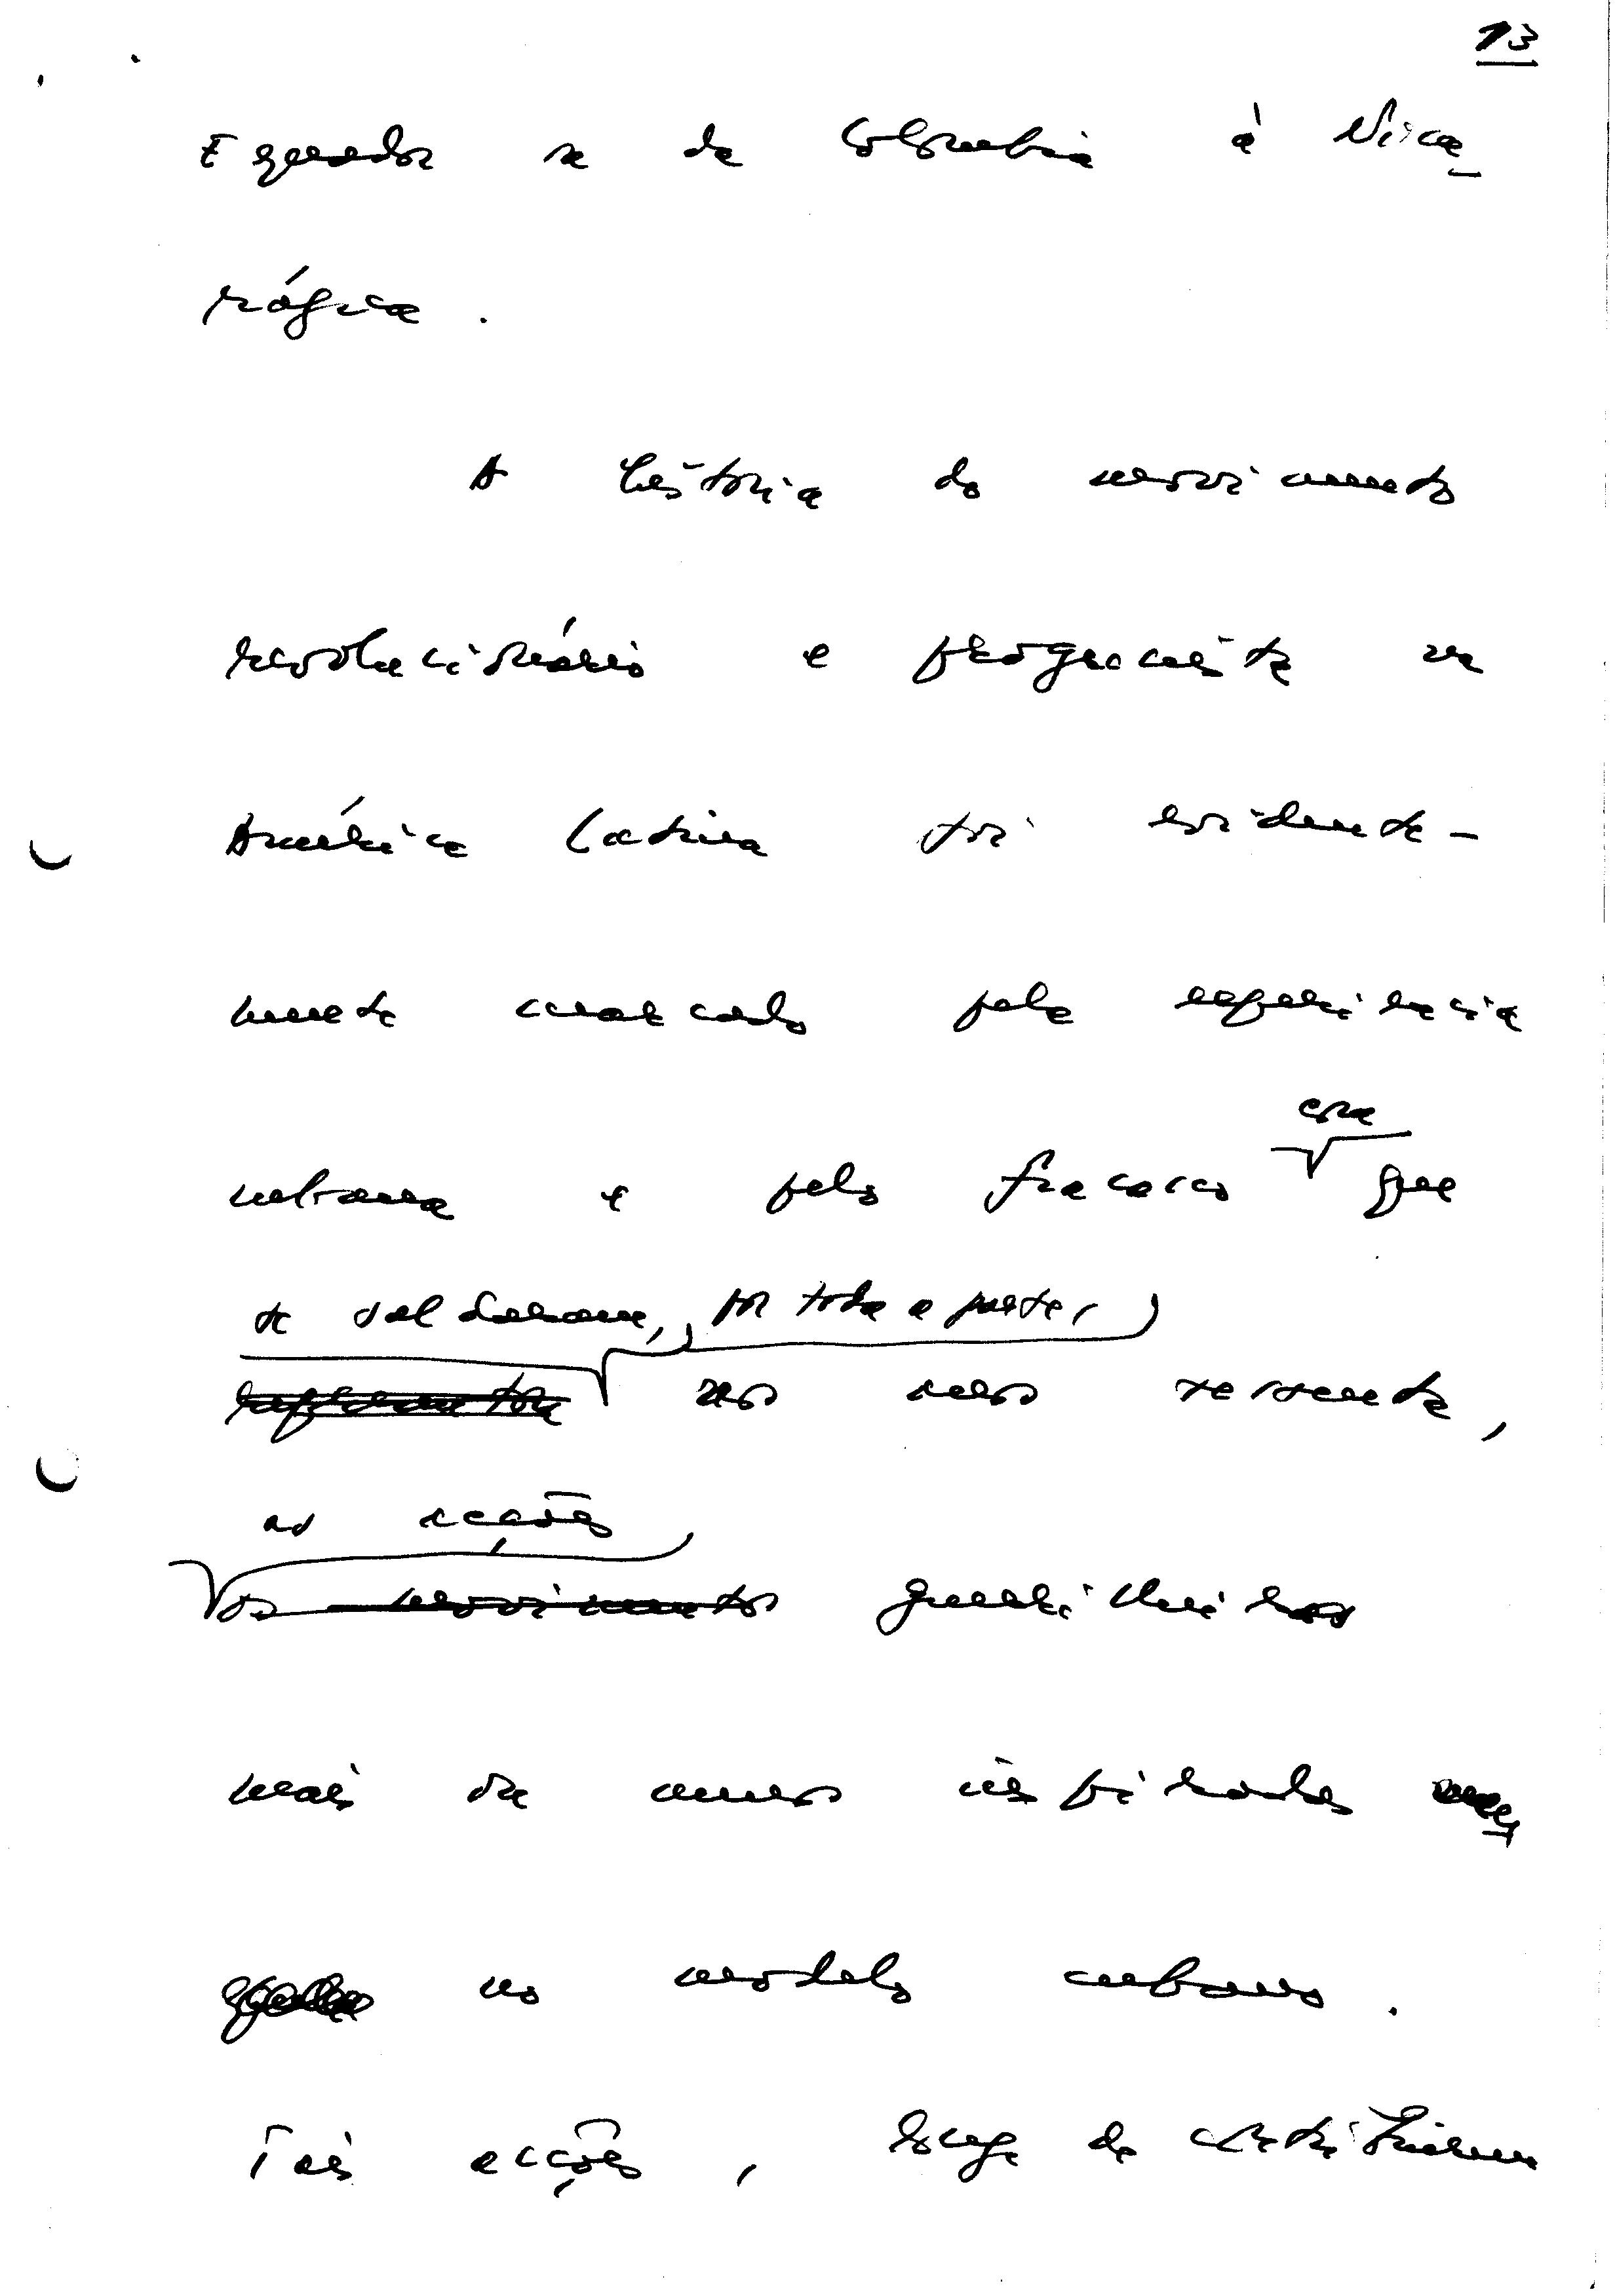 13
Equador e da Colombia à Nica_
rágua.
A história do movimento
revolucionário e progressista na
América Latina foi evidente-
mente marcado pela experiência
cubana e pelo fracasso com que
se saldaram, por toda a parte,
nos anos sessenta,
as acções
os movimentos guerrilheiros
mais ou menos inspirados
no modelo cubano.
Tais acções, longe de